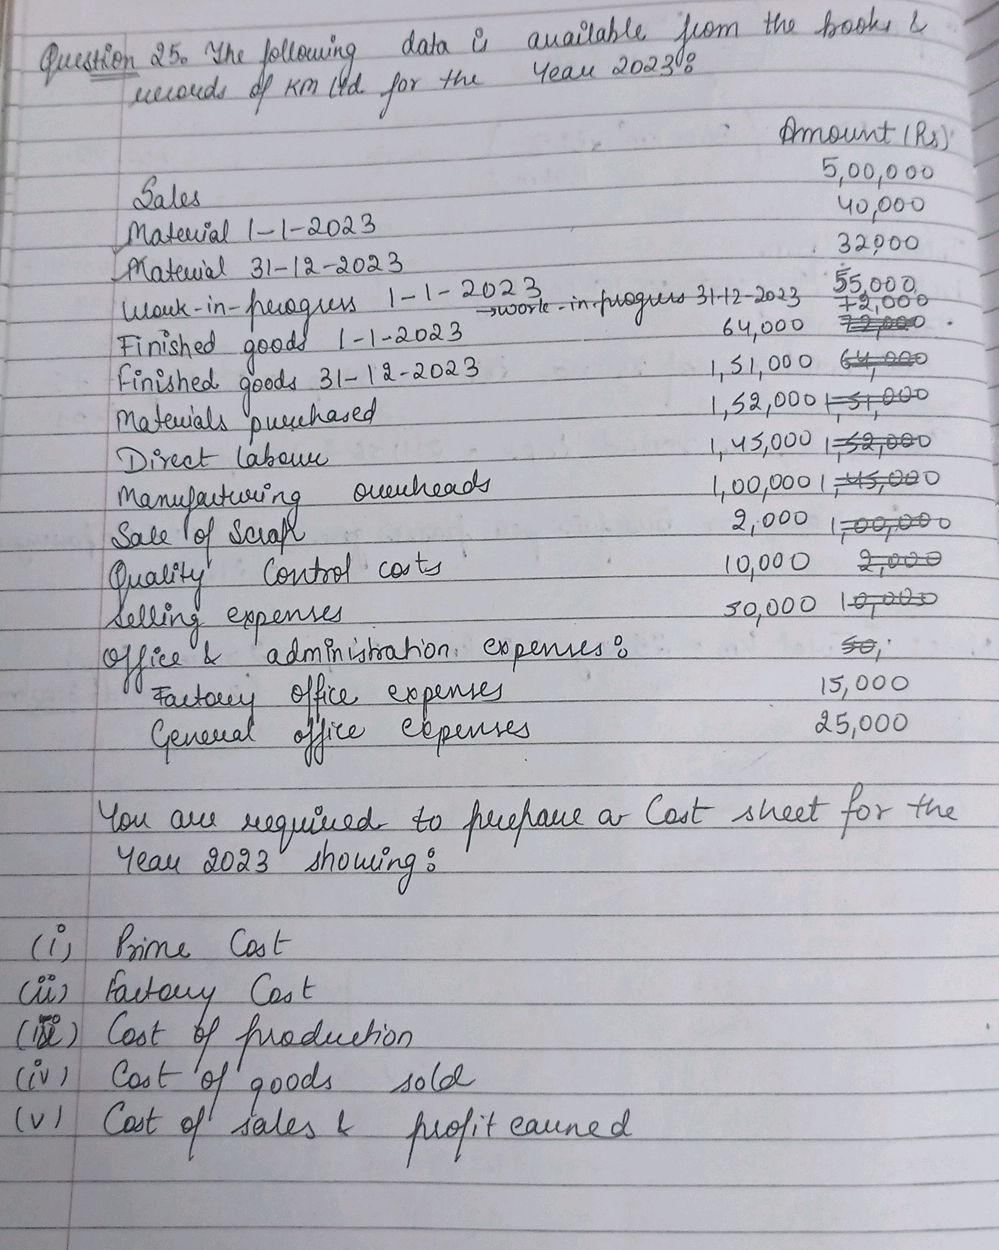 Question 25. The following data is available from the books &
records of KM Ltd for the Year 2023:
Amount (Rs)
Sales 5,00,000
Material 1-1-2023 40,000
Material 31-12-2023 32,000
Work-in-progress 1-1-2023 55,000
→ work-in-progress 31-12-2023 72,000
Finished goods 1-1-2023 64,000 72,000
Finished goods 31-12-2023 1,51,000 64,000
Materials purchased 1,52,000 1,51,000
Direct labour 1,45,000 1,52,000
Manufacturing overheads 1,00,000 1,45,000
Sale of Scrap 2,000 1,00,000
Quality Control costs 10,000 2,000
Selling expenses 50,000 10,000
Office & administration expenses: 50,
Factory office expenses 15,000
General office expenses 25,000
You are required to prepare a Cost sheet for the
Year 2023 showing:
(i) Prime Cost
(ii) Factory Cost
(iii) Cost of production
(iv) Cost of goods sold
(v) Cost of sales & profit earned